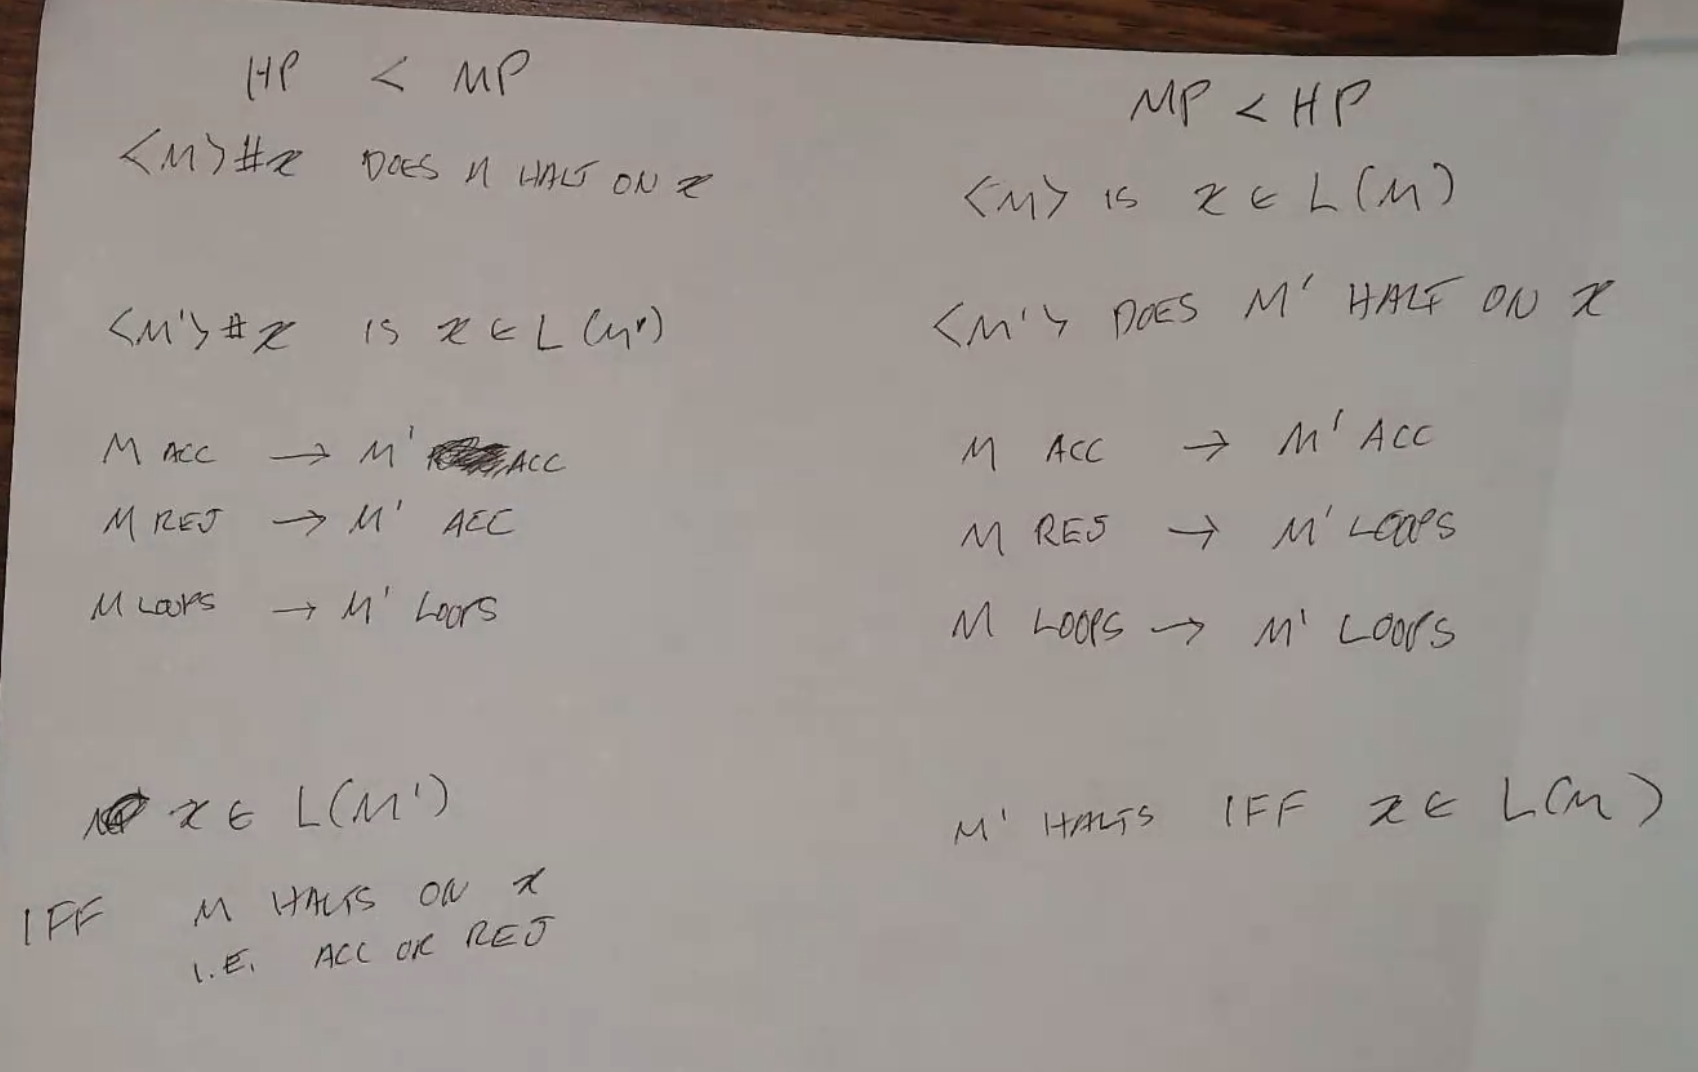 HP < MP
<M>#x DOES M HALT ON x
<M'>#x IS x ∈ L(M')
M ACC → M' ACC
M REJ → M' ACC
M LOOPS → M' LOOPS
x ∈ L(M')
IFF M HALTS ON x
I.E. ACC OR REJ
MP < HP
<M> IS x ∈ L(M)
<M'> DOES M' HALT ON x
M ACC → M' ACC
M REJ → M' LOOPS
M LOOPS → M' LOOPS
M' HALTS IFF x ∈ L(M)